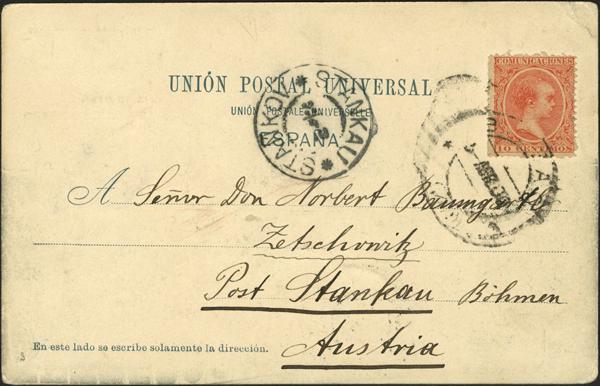 COMUNICACIONES
10 CENTIMOS
UNIÓN POSTAL UNIVERSAL
UNION POSTALE UNIVERSELLE
ESPAÑA
STANKAU * STAŇKOV *
A Señor Don Norbert Baumgartl
Zetschowitz
Post Stankau Böhmen
Austria
En este lado se escribe solamente la dirección.